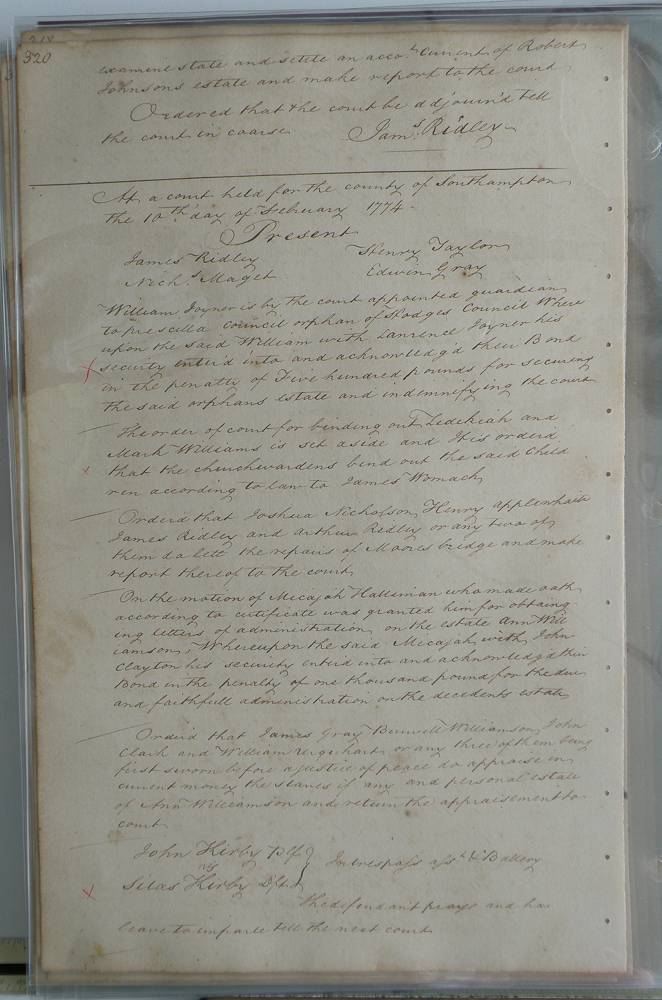 218
320
examine state and setele an accot. Current of Robert
Johnsons estate and make report to the court
Ordered that the court be adjourn'd tell
the court in coarse Jams. Ridley
At a court held for the county of Southampton
the 10th day of February 1774
Present
James Ridley Henry Taylor
Nichs. Maget Edwin Gray
William Joyner is by the court appointed guardian
to prescilla Council orphan of Hodges Council Where
upon the said William with Laurence Joyner his
security enter'd into and acknowledg'd their Bond
in the penalty of Five hundred pounds for secureing
the said orphans estate and indemnifying the court
The order of court for binding out Zedekiah and
Mark Williams is set aside and Itis orderd
that the churchwardens bend out the said Child
ren according to law to James Womach
Orderd that Joshua Nicholson Henry applewhaite
James Ridley and Arthur Ridley or any two of
them do lett the repairs of Moores bridge and make
report thereof to the court
On the motion of Micajah Halleman who made oath
according to certificate was granted him for obtaing
ing letters of administration on the estate Ann Will
iamson, Whereupon the said Micajah with John
Clayton his security enterd into and acknowledgd their
Bond in the penalty of one thousand pound for the due
and faithfull administration on the decedents estate
Orderd that James Gray Burwell Williamson John
Clark and William Urquhart or any three of them being
first sworn before a justice of peace do appraise in
current money the slaves if any and personal estate
of Ann Williamson and return the appraisement to
court
John Kirby Plf.
vs In trespass asst. & Battery
Silas Kirby Dft.
The defendant prays and has
leave to imparle tell the next court